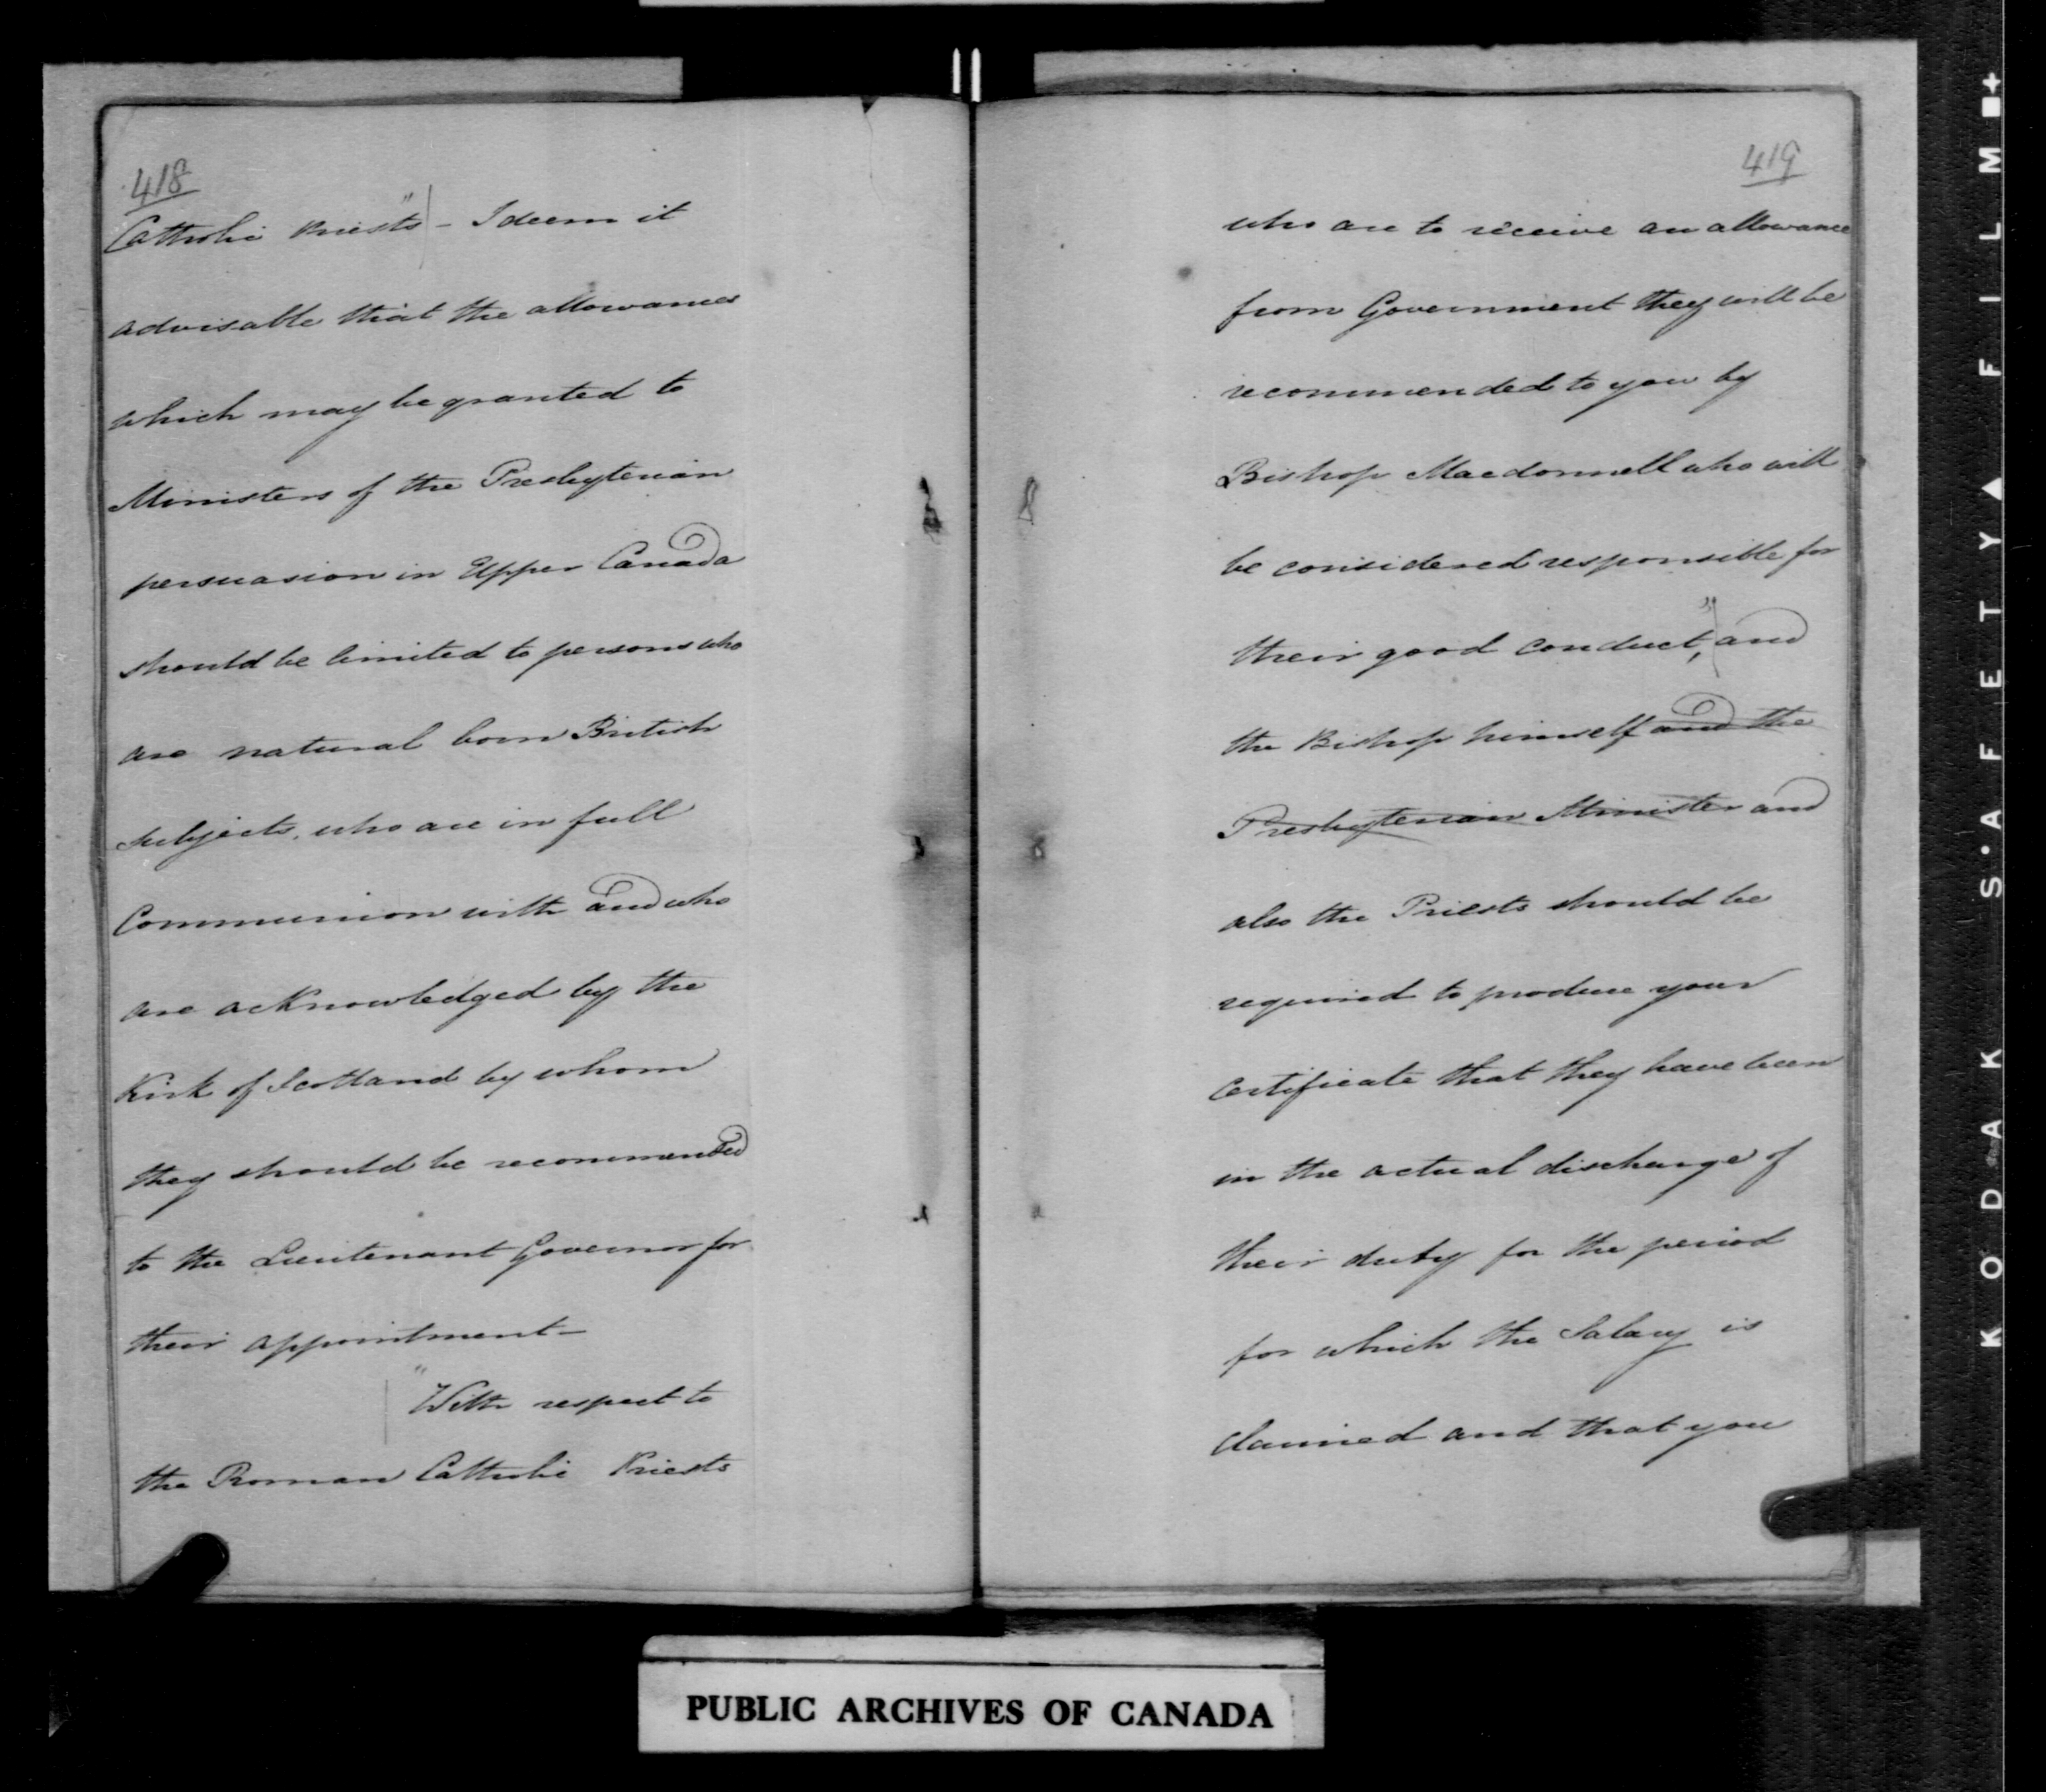 418
Catholic Priests" - I deem it
advisable that the allowances
which may be granted to
Ministers of the Presbyterian
persuasion in Upper Canada
should be limited to persons who
are natural born British
subjects, who are in full
Communion with and who
are acknowledged by the
Kirk of Scotland by whom
they should be recommended
to the Lieutenant Governor for
their appointment—
"With respect to
the Roman Catholic Priests
419
who are to receive an allowance
from Government they will be
recommended to you by
Bishop Macdonnell who will
be considered responsible for
their good conduct," and
the Bishop himself and the
Presbyterian Minister and
also the Priests should be
required to produce your
Certificate that they have been
in the actual discharge of
their duty for the period
for which the Salary is
claimed and that you
PUBLIC ARCHIVES OF CANADA
KODAK S·AFETY▲FILM